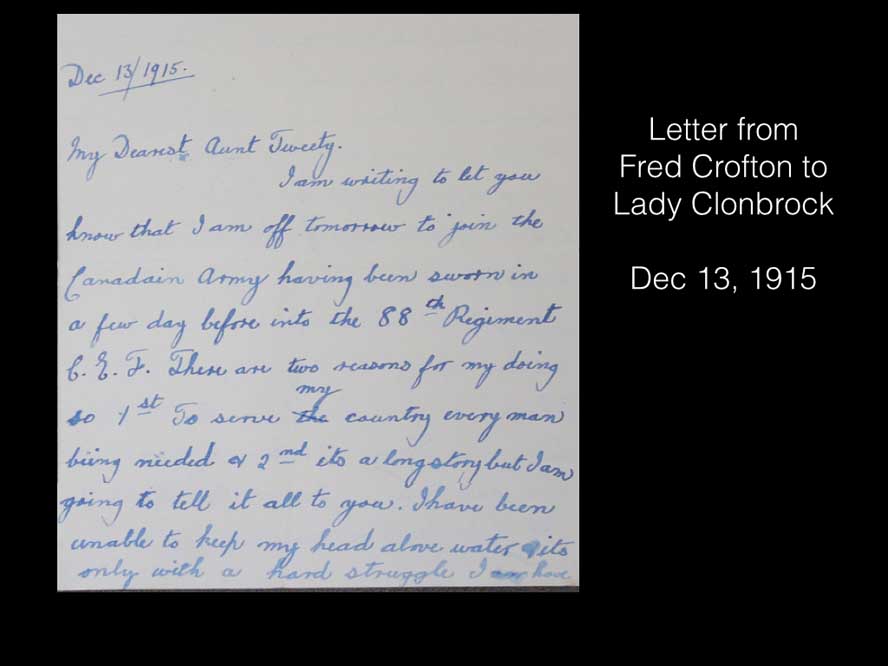 Dec 13/1915.
My Dearest Aunt Tweety.
I am writing to let you
know that I am off tomorrow to join the
Canadain Army having been sworn in
a few day before into the 88th Regiment
C. E. F. There are two reasons for my doing
my
so 1st To serve the country every man
being needed & 2nd its a long story but I am
going to tell it all to you. I have been
unable to keep my head above water & its
only with a hard struggle I am have
Letter from
Fred Crofton to
Lady Clonbrock
Dec 13, 1915